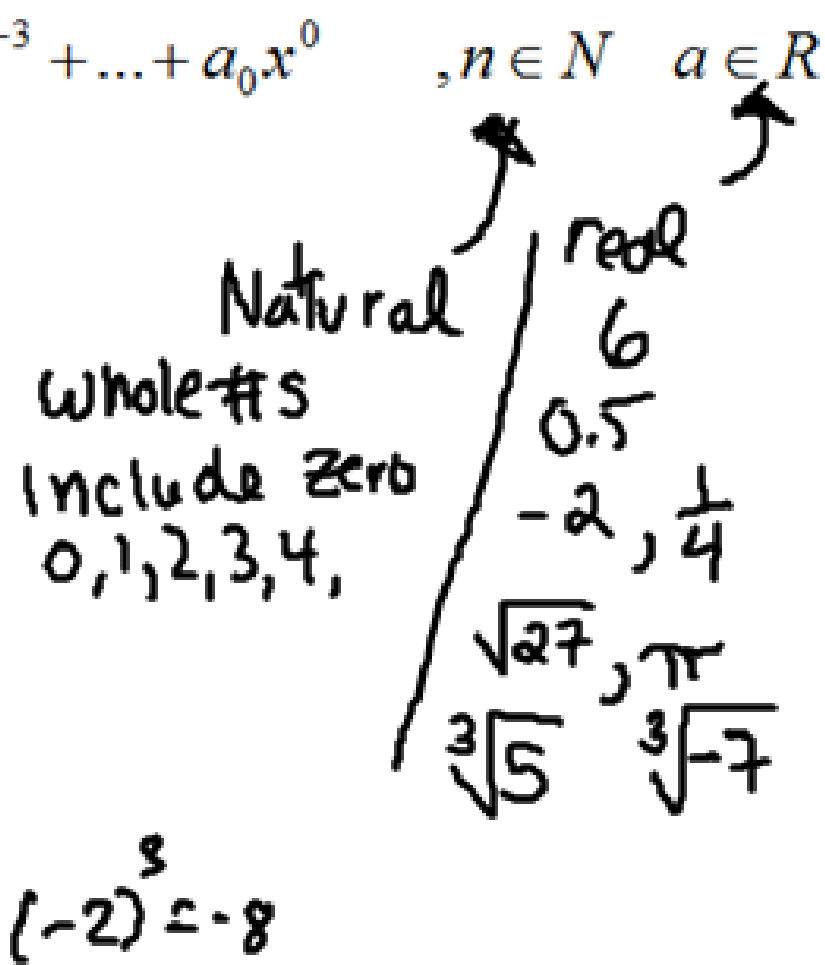 -3 +...+ a₀x⁰ , n ∈ N a ∈ R
Natural
whole #s
include zero
0,1,2,3,4,
real
6
0.5
-2, 1/4
√27, π
³√5 ³√-7
(-2)³ = -8